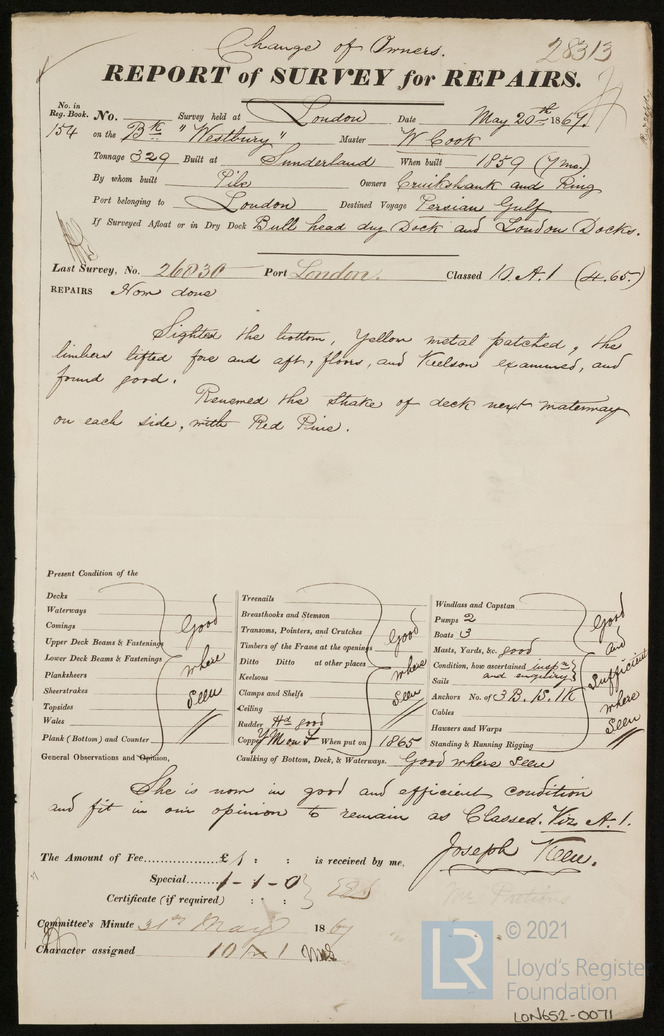 Change of Owners. 28313
REPORT of SURVEY for REPAIRS.
No. in Reg. Book. No. Survey held at London Date May 20th 1867.
154 on the Bk "Westbury" Master W Cook
Tonnage 329 Built at Sunderland When built 1859 (7 mo.)
By whom built Pile Owners Cruikshank and Ring
Port belonging to London Destined Voyage Persian Gulf
If Surveyed Afloat or in Dry Dock Bull head dry Dock and London Docks.
Last Survey, No. 26030 Port London. Classed 10. A.1 (4.65)
REPAIRS Now done
Sighted the bottom, Yellow metal patched, the
limbers lifted fore and aft, floors, and Keelson examined, and
found good.
Renewed the strake of deck next waterway
on each side, with Red Pine.
Present Condition of the
Decks
Waterways
Comings
Upper Deck Beams & Fastenings
Lower Deck Beams & Fastenings
Planksheers
Sheerstrakes
Topsides
Wales
Plank (Bottom) and Counter
Good
where
seen
Treenails
Breasthooks and Stemson
Transoms, Pointers, and Crutches
Timbers of the Frame at the openings
Ditto Ditto at other places
Keelsons
Clamps and Shelfs
Ceiling
Rudder Hd good
Copper Y M on F When put on 1865
Good
where
seen
Windlass and Capstan
Pumps 2
Boats 3
Masts, Yards, &c. good
Condition, how ascertained inspn
and enquiry
Sails
Anchors No. of 3 B. 1S. 1K
Cables
Hausers and Warps
Standing & Running Rigging
Good
and
Sufficient
where
seen
General Observations and Opinion, Caulking of Bottom, Deck, & Waterways. Good where seen
She is now in good and efficient condition
and fit in our opinion to remain as Classed. Viz A.1.
The Amount of Fee £1 : : is received by me,
Joseph Keen.
Special 1-1-0
Certificate (if required) : :
Committee's Minute 31st May 1867
Character assigned 10 A 1
© 2021
LR
Lloyd's Register
Foundation
LON652-0071